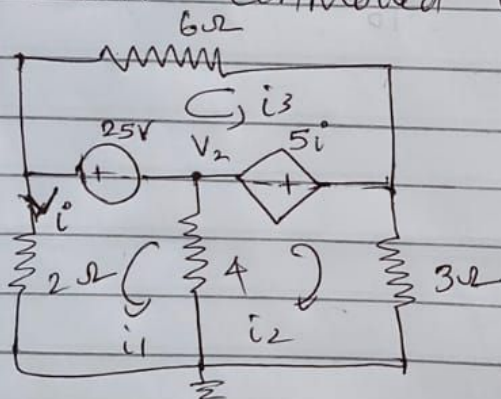 6Ω
i3
25V
V2
5i
+
+
i
2Ω
4
3Ω
i1
i2